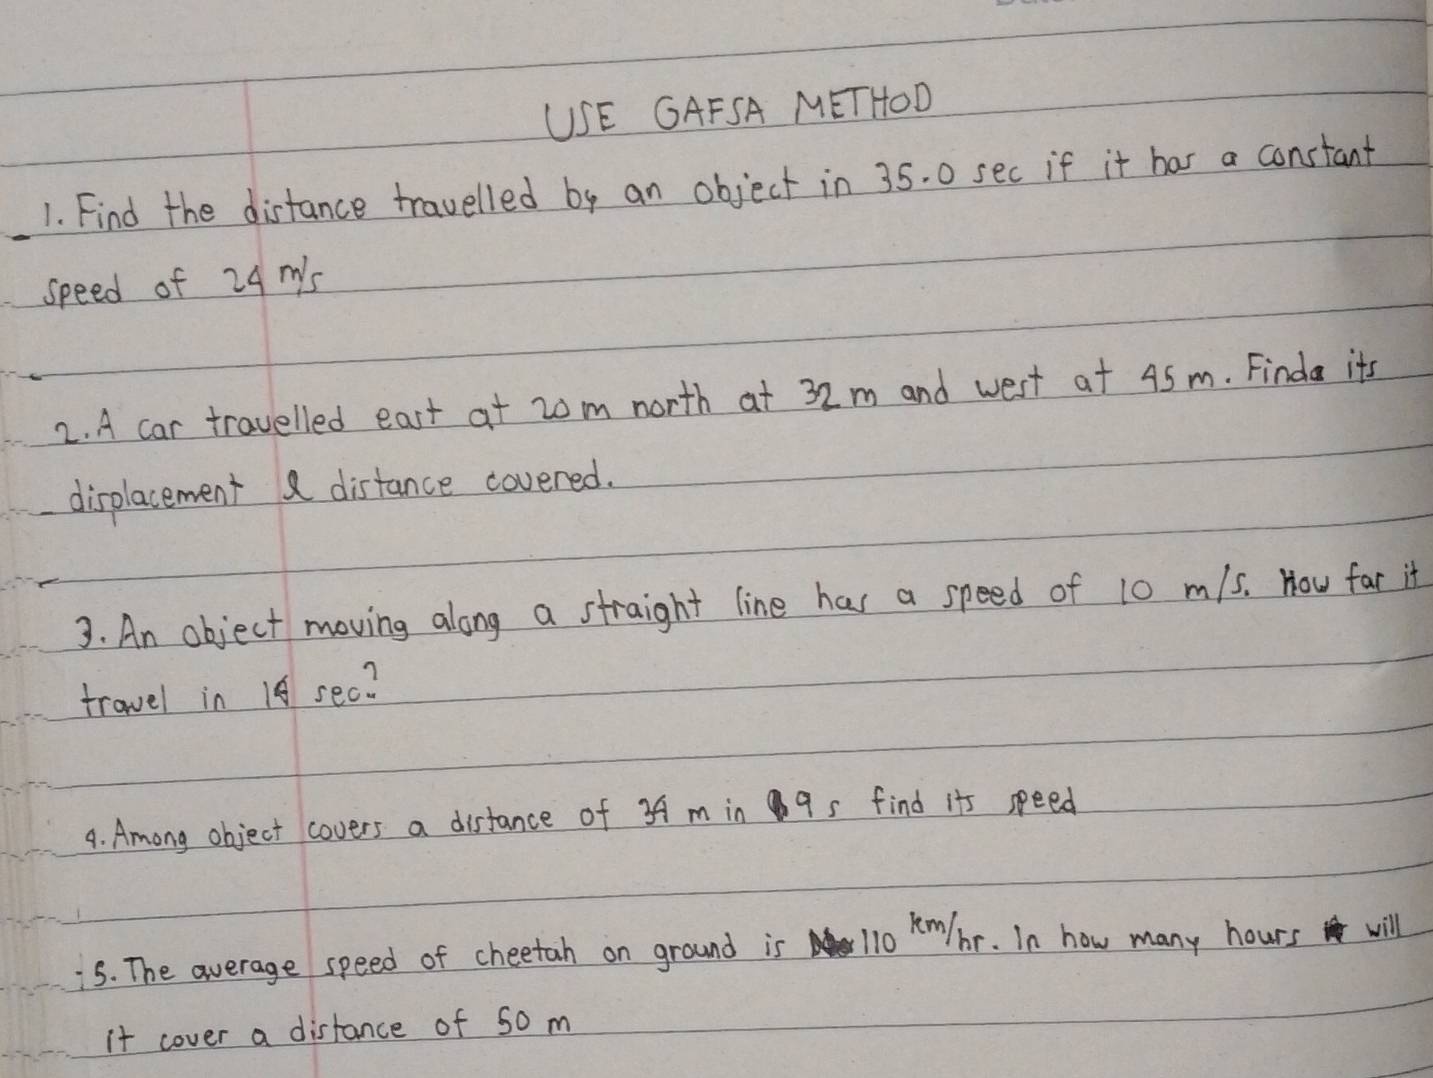 USE GAFSA METHOD
1. Find the distance travelled by an object in 35.0 sec if it has a constant
speed of 24 m/s
2. A car travelled east at 20m north at 32 m and west at 45 m. Find its
displacement & distance covered.
3. An object moving along a straight line has a speed of 10 m/s. How far it
travel in 14 sec?
4. Among object covers a distance of 34 m in 9 s find its speed
5. The average speed of cheetah on ground is 110 km/hr. In how many hours will
it cover a distance of 50 m